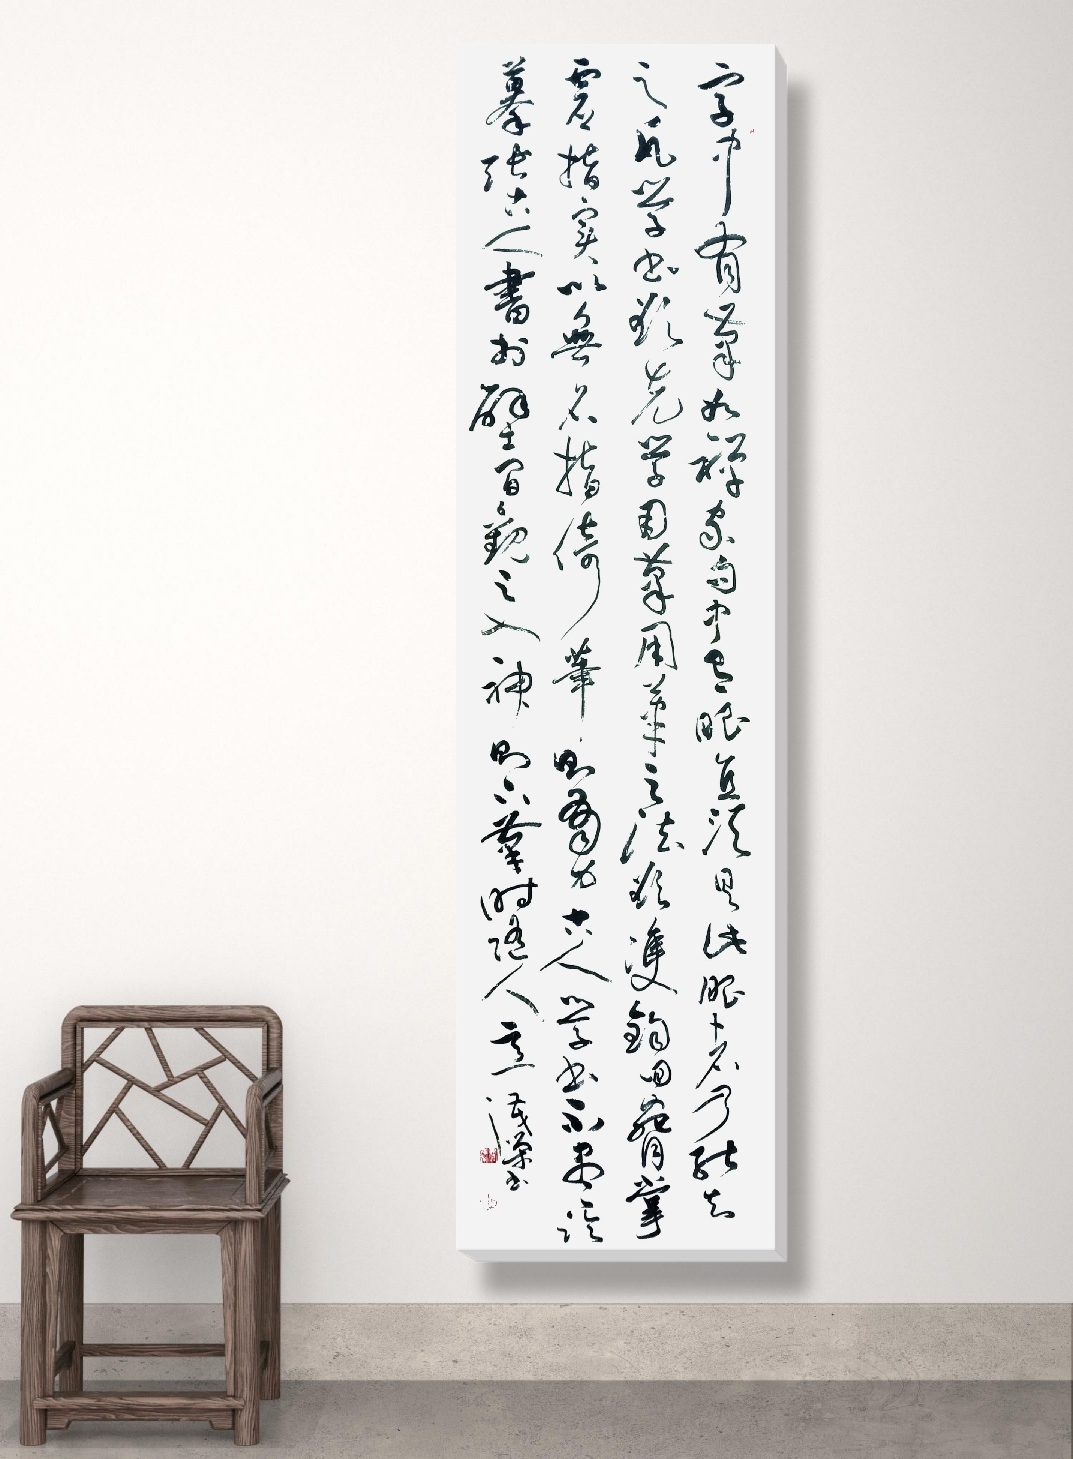 字中有筆如禪家句中有眼直須具此眼乃能知
之凡學書欲先學用筆用筆之法欲雙鉤回腕掌
虛指實以無名指倚筆則有力古人學書不盡臨
摹張古人書於壁間觀之入神則下筆時隨人意
茂榮書